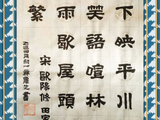 下映平川
笑語喧林
雨歇屋頭
繁
宋歐陽修田家